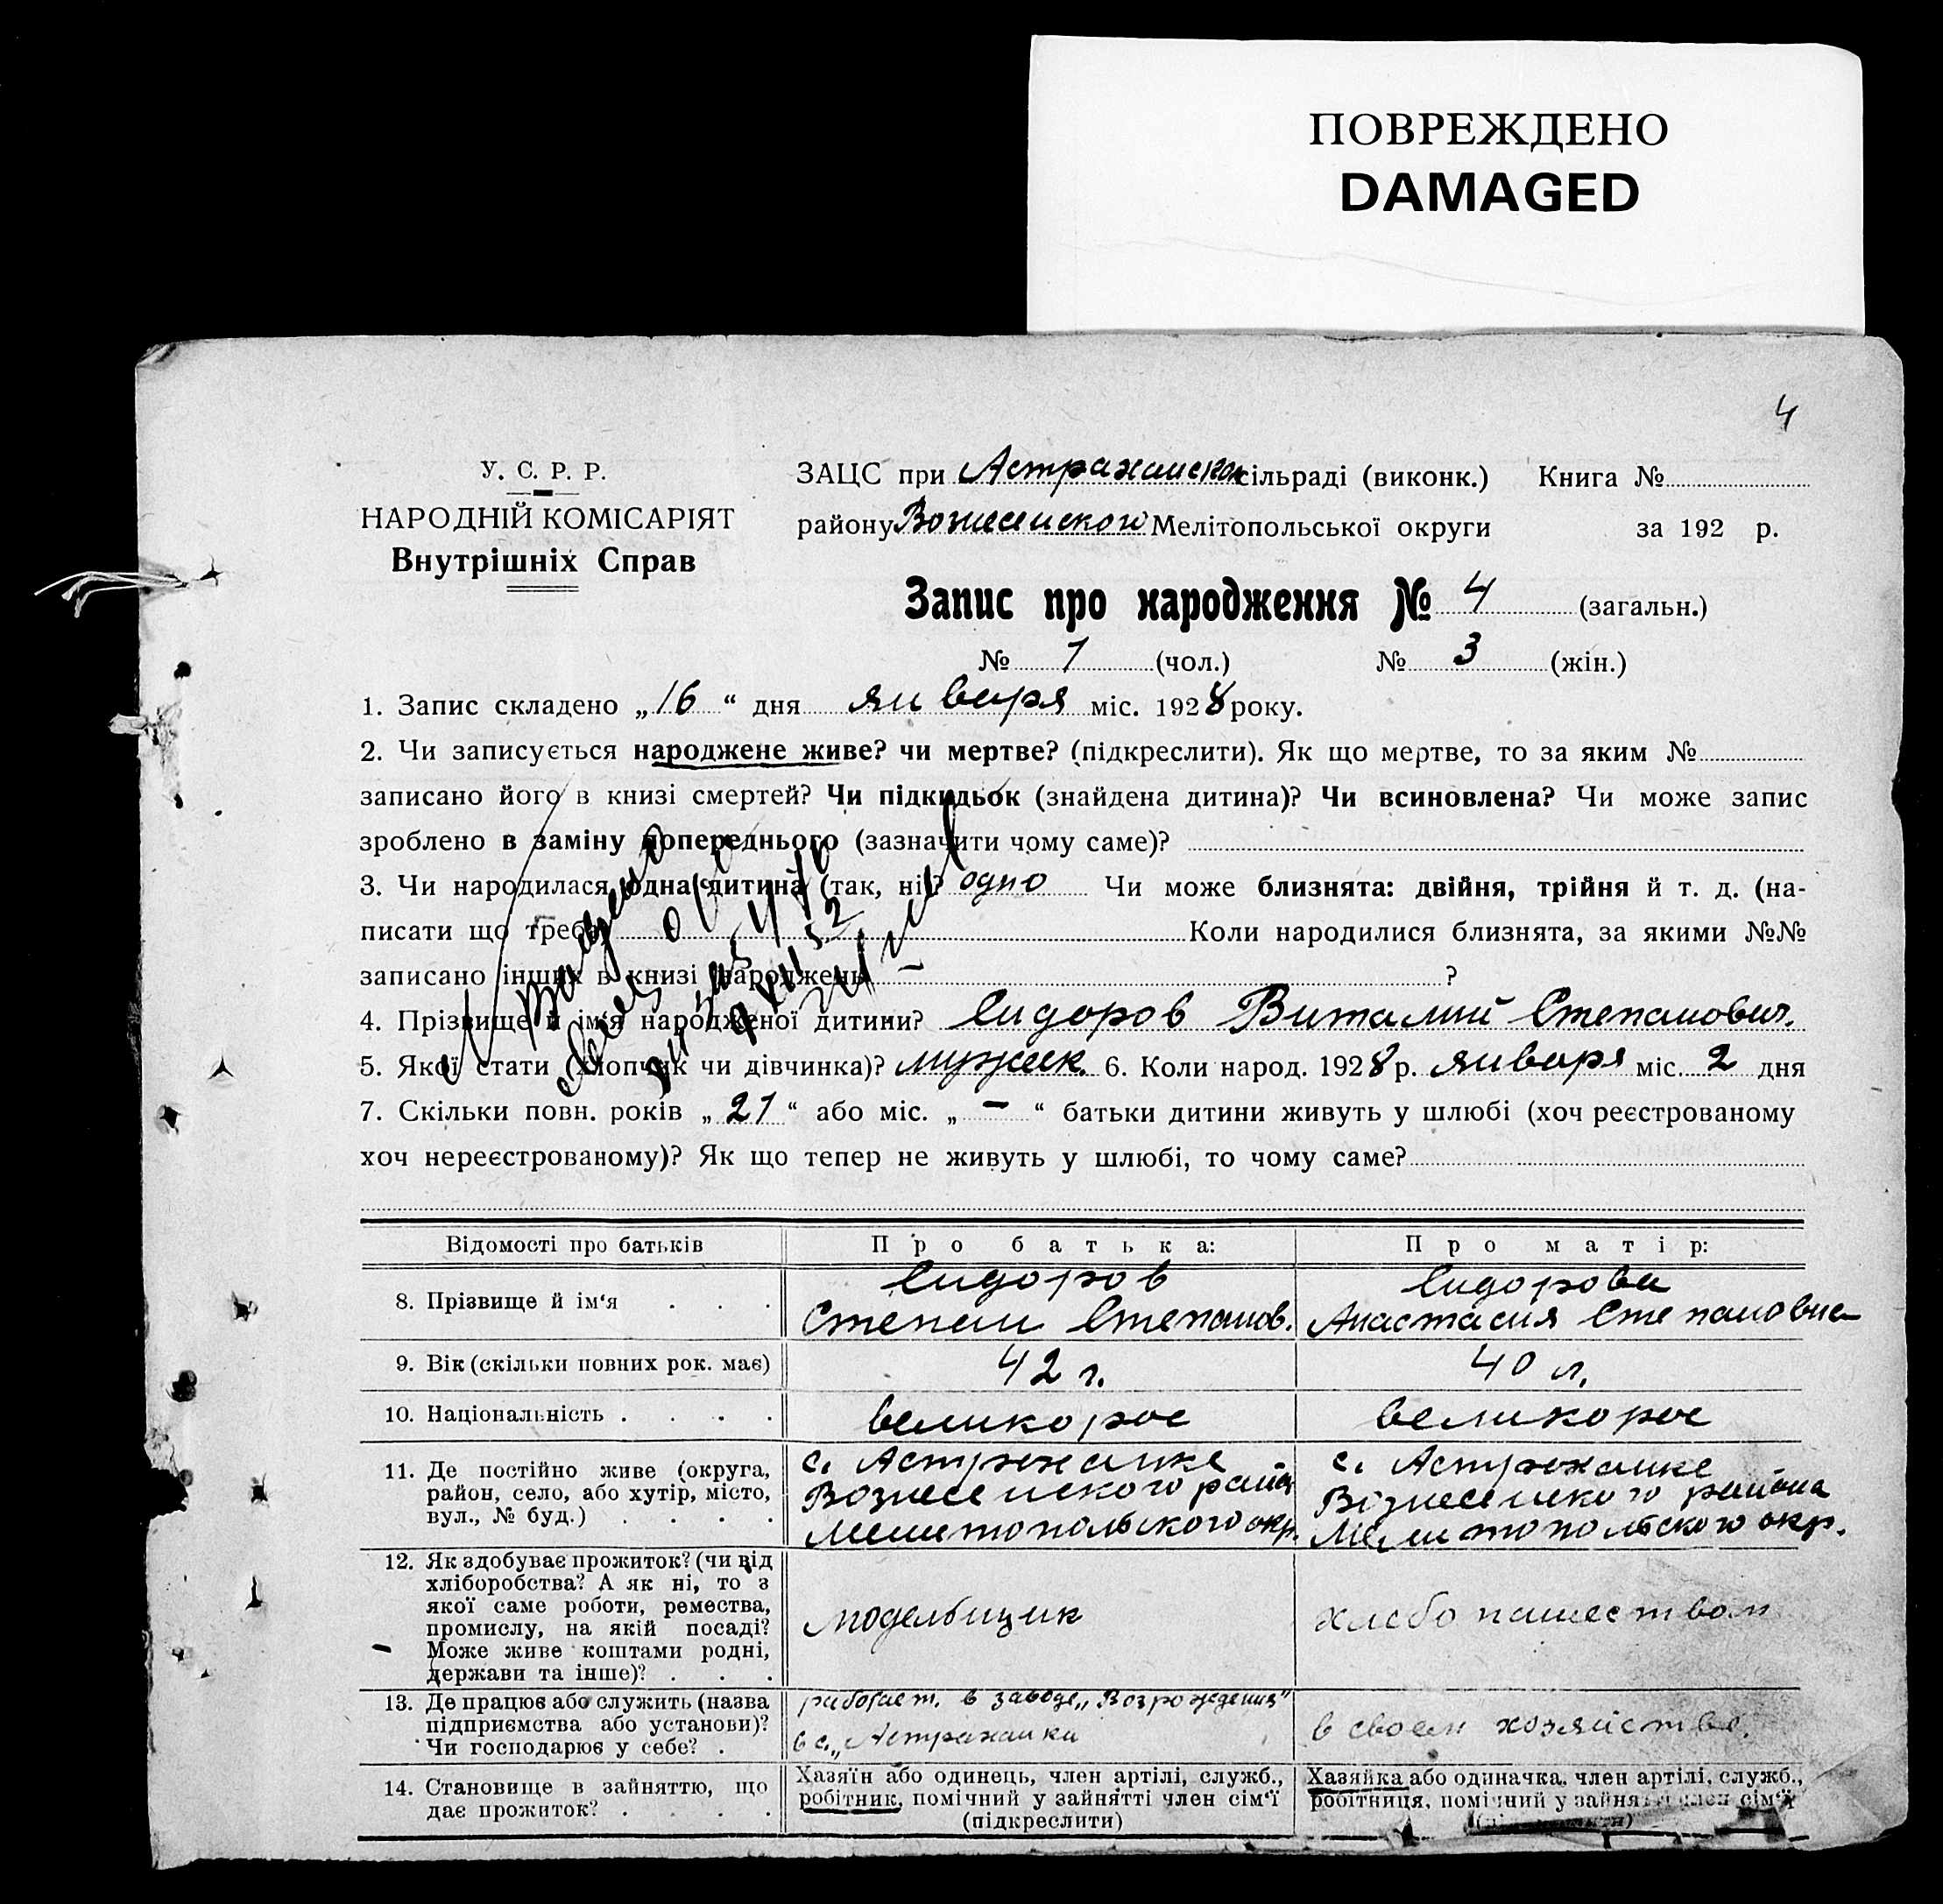 ПОВРЕЖДЕНО
DAMAGED
4
У. С. Р. Р.
НАРОДНІЙ КОМІСАРІЯТ
Внутрішніх Справ
ЗАЦС при Астраханской сільраді (виконк.) Книга №
району Вознесенского Мелітопольської округи за 192 р.
Запис про народження № 4 (загальн.)
№ 1 (чол.) № 3 (жін.)
1. Запис складено „16“ дня января міс. 1928 року.
2. Чи записується народжене живе? чи мертве? (підкреслити). Як що мертве, то за яким №
записано його в книзі смертей? Чи підкидьок (знайдена дитина)? Чи всиновлена? Чи може запис
зроблено в заміну попереднього (зазначити чому саме)?
3. Чи народилася одна дитина (так, ні)? одно Чи може близнята: двійня, трійня й т. д. (на-
писати що треба) Коли народилися близнята, за якими №№
записано інших в книзі народжень — ?
4. Прізвище й ім‘я народженої дитини? Сидоров Виталий Степанович.
5. Якої стати (хлопчик чи дівчинка)? мужск. 6. Коли народ. 1928 р. января міс. 2 дня
7. Скільки повн. років „21“ або міс. „—“ батьки дитини живуть у шлюбі (хоч реєстрованому
хоч нереєстрованому)? Як що тепер не живуть у шлюбі, то чому саме?
Відомості про батьків Про батька: Про матір:
8. Прізвище й ім‘я . . . Сидоров Степан Степанов. Сидорова Анастасия Степановна
9. Вік (скільки повних рок. має) 42 г. 40 л.
10. Національність . . . . великорос великорос
11. Де постійно живе (округа,
район, село, або хутір, місто,
вул., № буд.) . . . .
с. Астраханке
Вознесенского район
Мелитопольского окр.
с. Астраханке
Вознесенского района
Мелитопольского окр.
12. Як здобуває прожиток? (чи від
хліборобства? А як ні, то з
якої саме роботи, ремества,
промислу, на якій посаді?
Може живе коштами родні,
держави та інше)? . . .
модельщик
хлебопашеством
13. Де працює або служить (назва
підприємства або установи)?
Чи господарює у себе? .
работает. в заводе „Возрождения“
в с. „Астраханка
в своем хозяйстве.
14. Становище в зайняттю, що
дає прожиток? . . . .
Хазяїн або одинець, член артілі, служб.,
робітник, помічний у зайнятті член сім‘ї
(підкреслити)
Хазяйка або одиначка, член артілі, служб.,
робітниця, помічний у зайнятті член сім‘ї